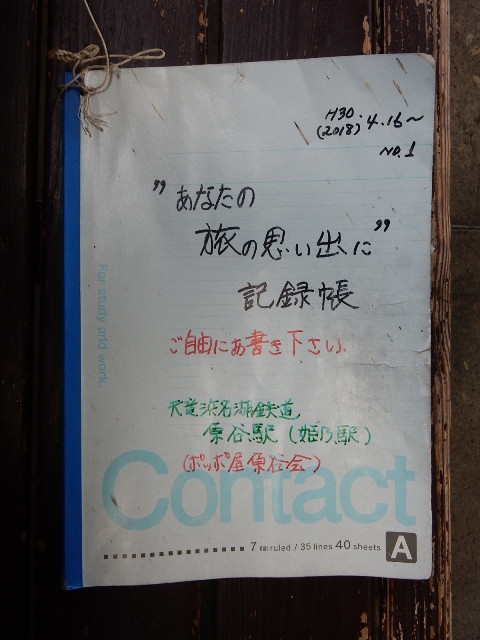 H30.
(2018) 4.16〜
NO.1
"あなたの
旅の思い出に"
記録帳
ご自由にお書き下さい.
天竜浜名湖鉄道
原谷駅(姫乃駅)
(ポッポ屋原谷会)
For study and work.
Contact
7mm ruled / 35 lines 40 sheets
A